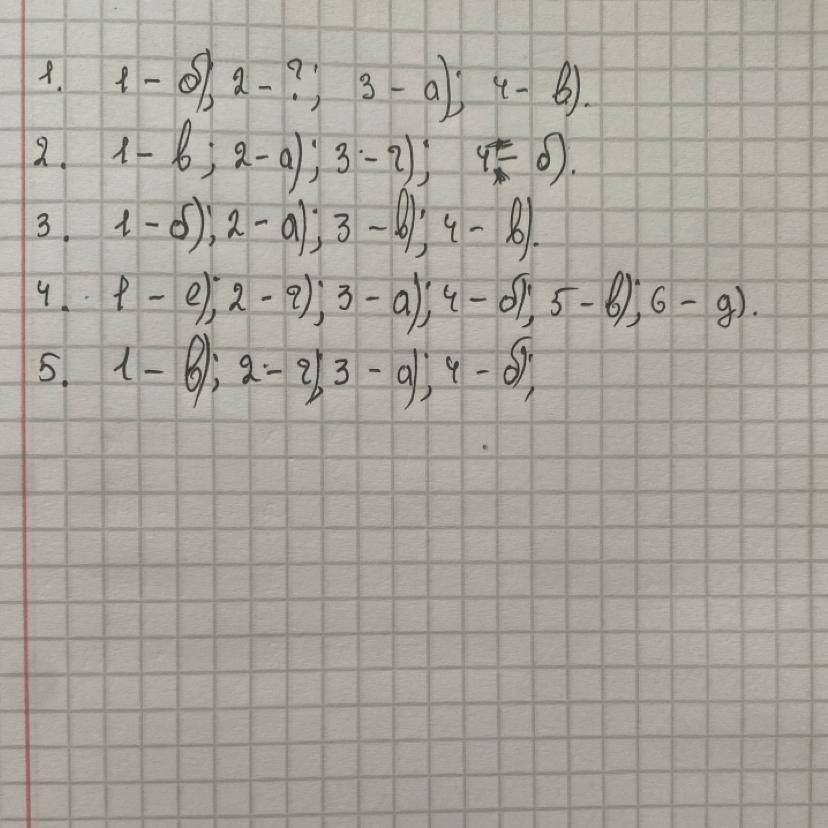 1. 1 - б); 2 - ?; 3 - а); 4 - в).
2. 1 - в; 2 - а); 3 - г); 4 - б).
3. 1 - б); 2 - а); 3 - в); 4 - в).
4. 1 - е); 2 - г); 3 - а); 4 - б); 5 - в); 6 - д).
5. 1 - в); 2 - г); 3 - а); 4 - б);